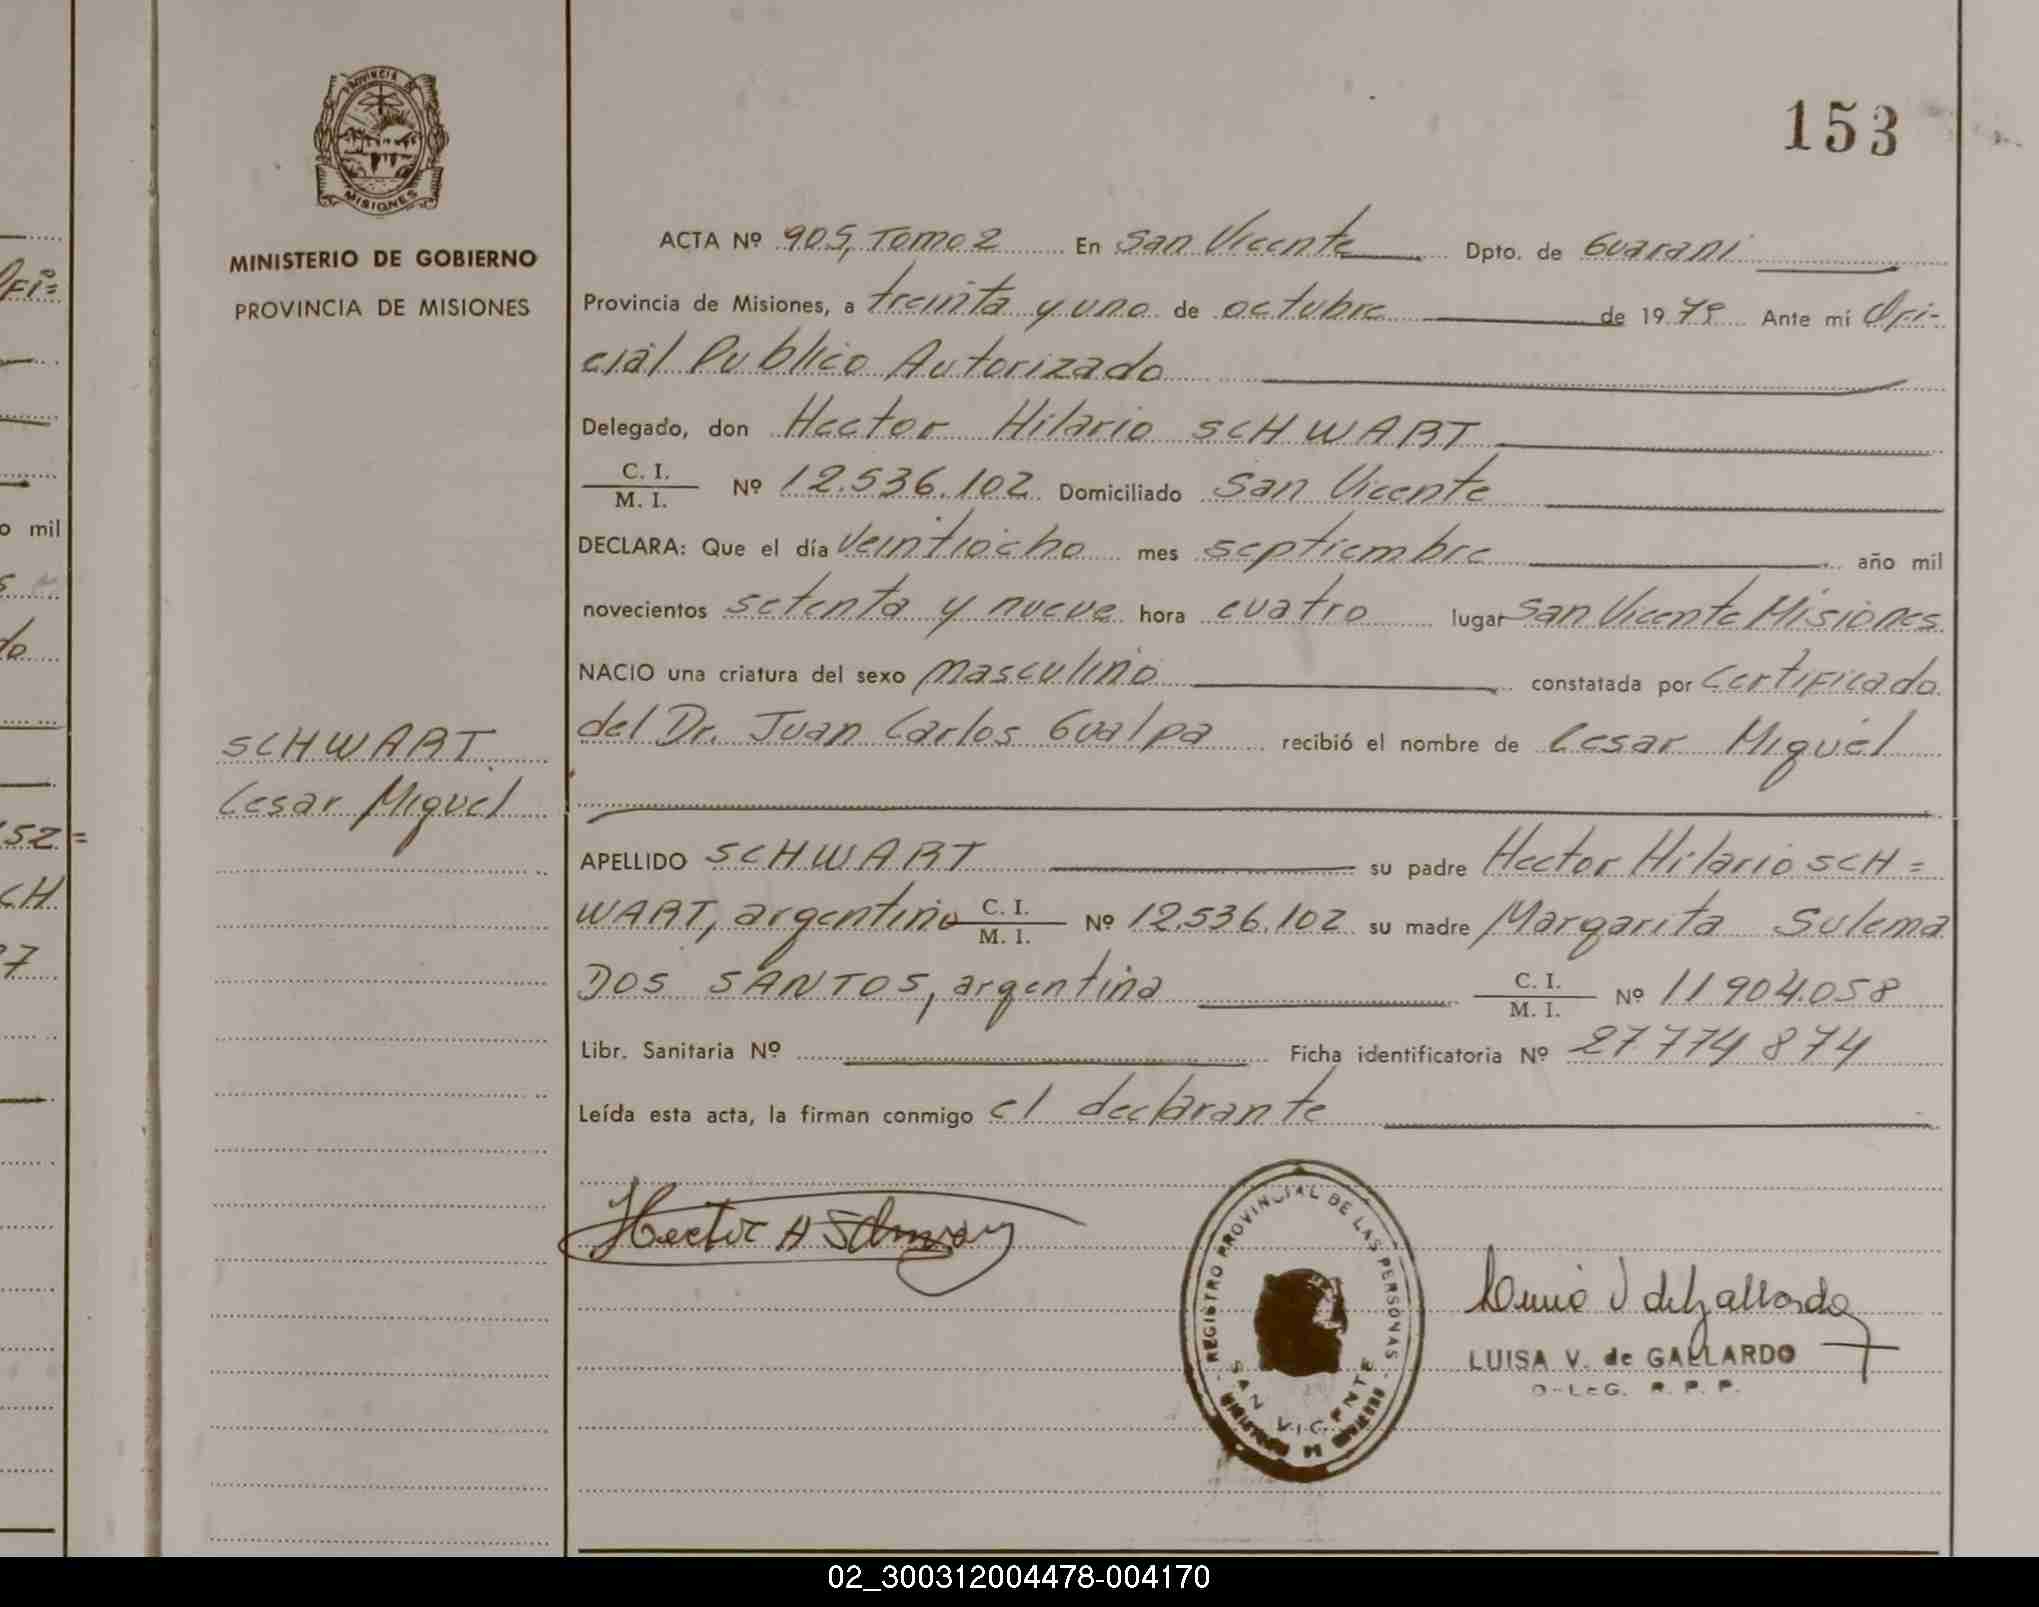 153
PROVINCIA DE
MISIONES
MINISTERIO DE GOBIERNO
PROVINCIA DE MISIONES
SCHWART
Cesar Miguel
ACTA Nº 905, Tomo 2 En San Vicente Dpto. de Guarani
Provincia de Misiones, a treinta y uno de octubre de 1979 Ante mí Ofi-
cial Publico Autorizado
Delegado, don Hector Hilario SCHWART
C. I.
M. I. Nº 12.536.102 Domiciliado San Vicente
DECLARA: Que el día Veintiocho mes septiembre año mil
novecientos setenta y nueve hora cuatro lugar San Vicente Misiones
NACIO una criatura del sexo masculino constatada por Certificado
del Dr. Juan Carlos Gualpa recibió el nombre de Cesar Miguel
APELLIDO SCHWART su padre Hector Hilario SCH=
WART, argentino C. I.
M. I. Nº 12.536.102 su madre Margarita Sulema
DOS SANTOS, argentina C. I.
M. I. Nº 11904.058
Libr. Sanitaria Nº Ficha identificatoria Nº 27774874
Leída esta acta, la firman conmigo el declarante
Hector H
REGISTRO PROVINCIAL DE LAS PERSONAS
SAN VICENTE
LUISA V. de GALLARDO
R. P. P.
Ofi=
o mil
do
52=
CH
7
02_300312004478-004170